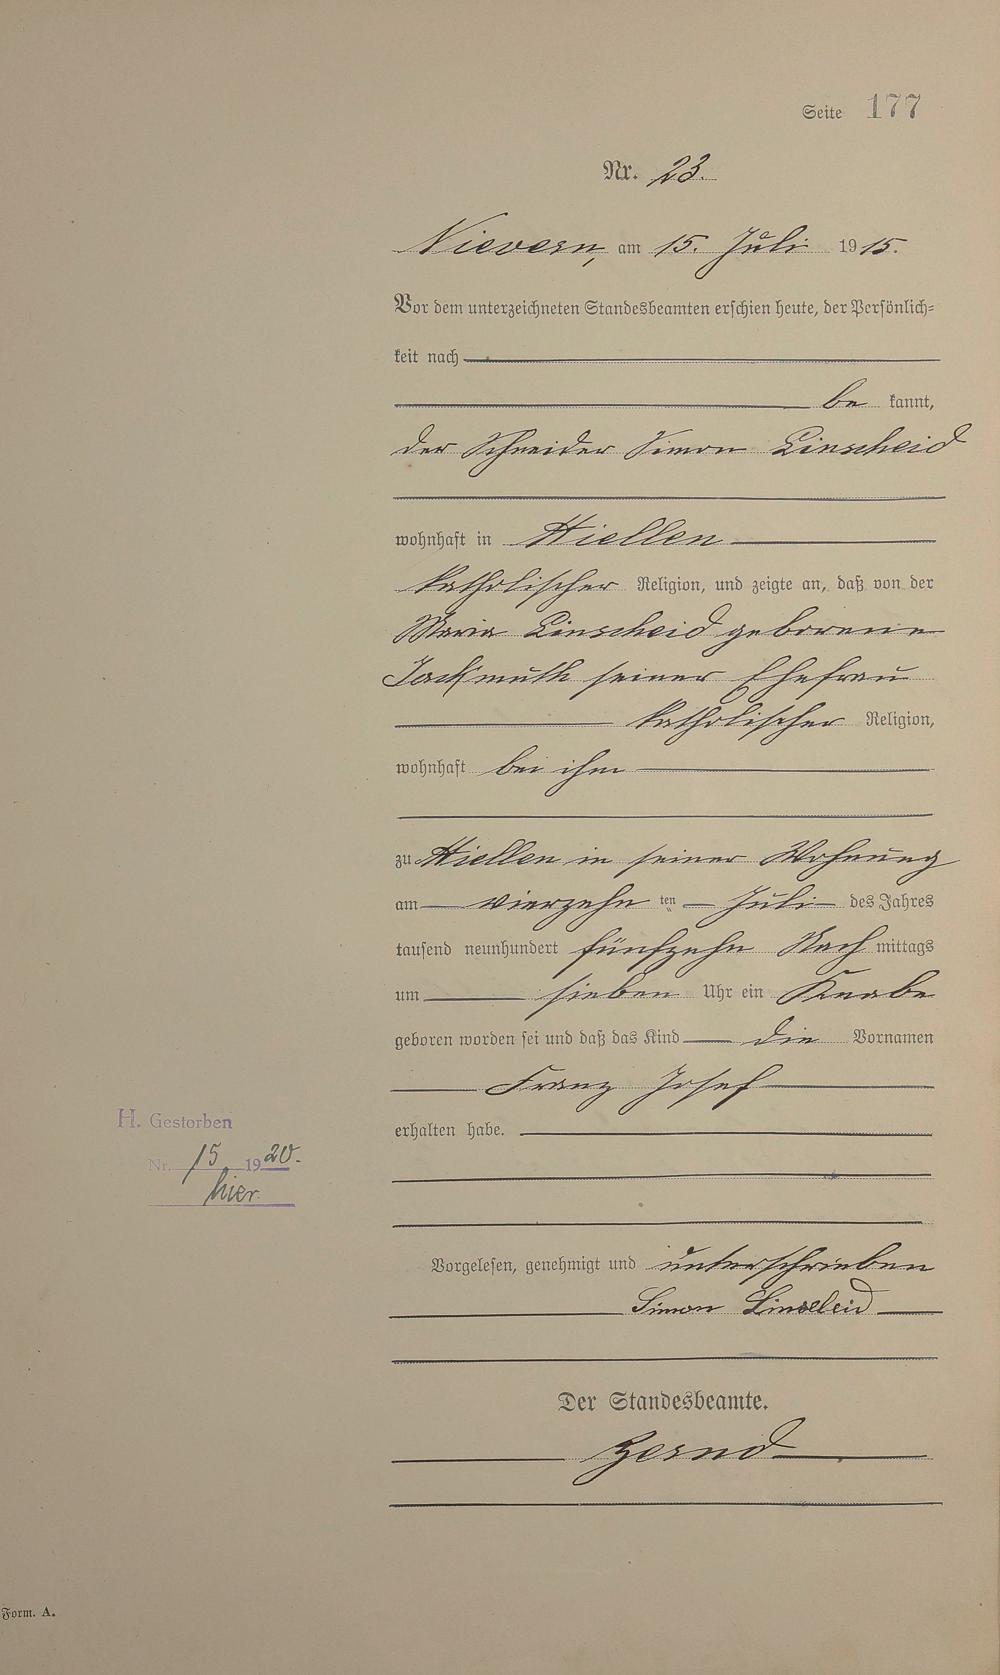 Seite 177
Nr. 23.
Nievern, am 15. Juli 1915.
Vor dem unterzeichneten Standesbeamten erschien heute, der Persönlich=
keit nach
be kannt,
der Schneider Simon Linscheid
wohnhaft in Miellen
katholischer Religion, und zeigte an, daß von der
Maria Linscheid geborene
Jackmuth seiner Ehefrau
katholischer Religion,
wohnhaft bei ihm
zu Miellen in seiner Wohnung
am vierzehn ten Juli des Jahres
tausend neunhundert fünfzehn Nach mittags
um sieben Uhr ein Knabe
geboren worden sei und daß das Kind die Vornamen
Franz Josef
erhalten habe.
H. Gestorben
Nr. 15 1920.
hier.
Vorgelesen, genehmigt und unterschrieben
Simon Linscheid
Der Standesbeamte.
Form. A.